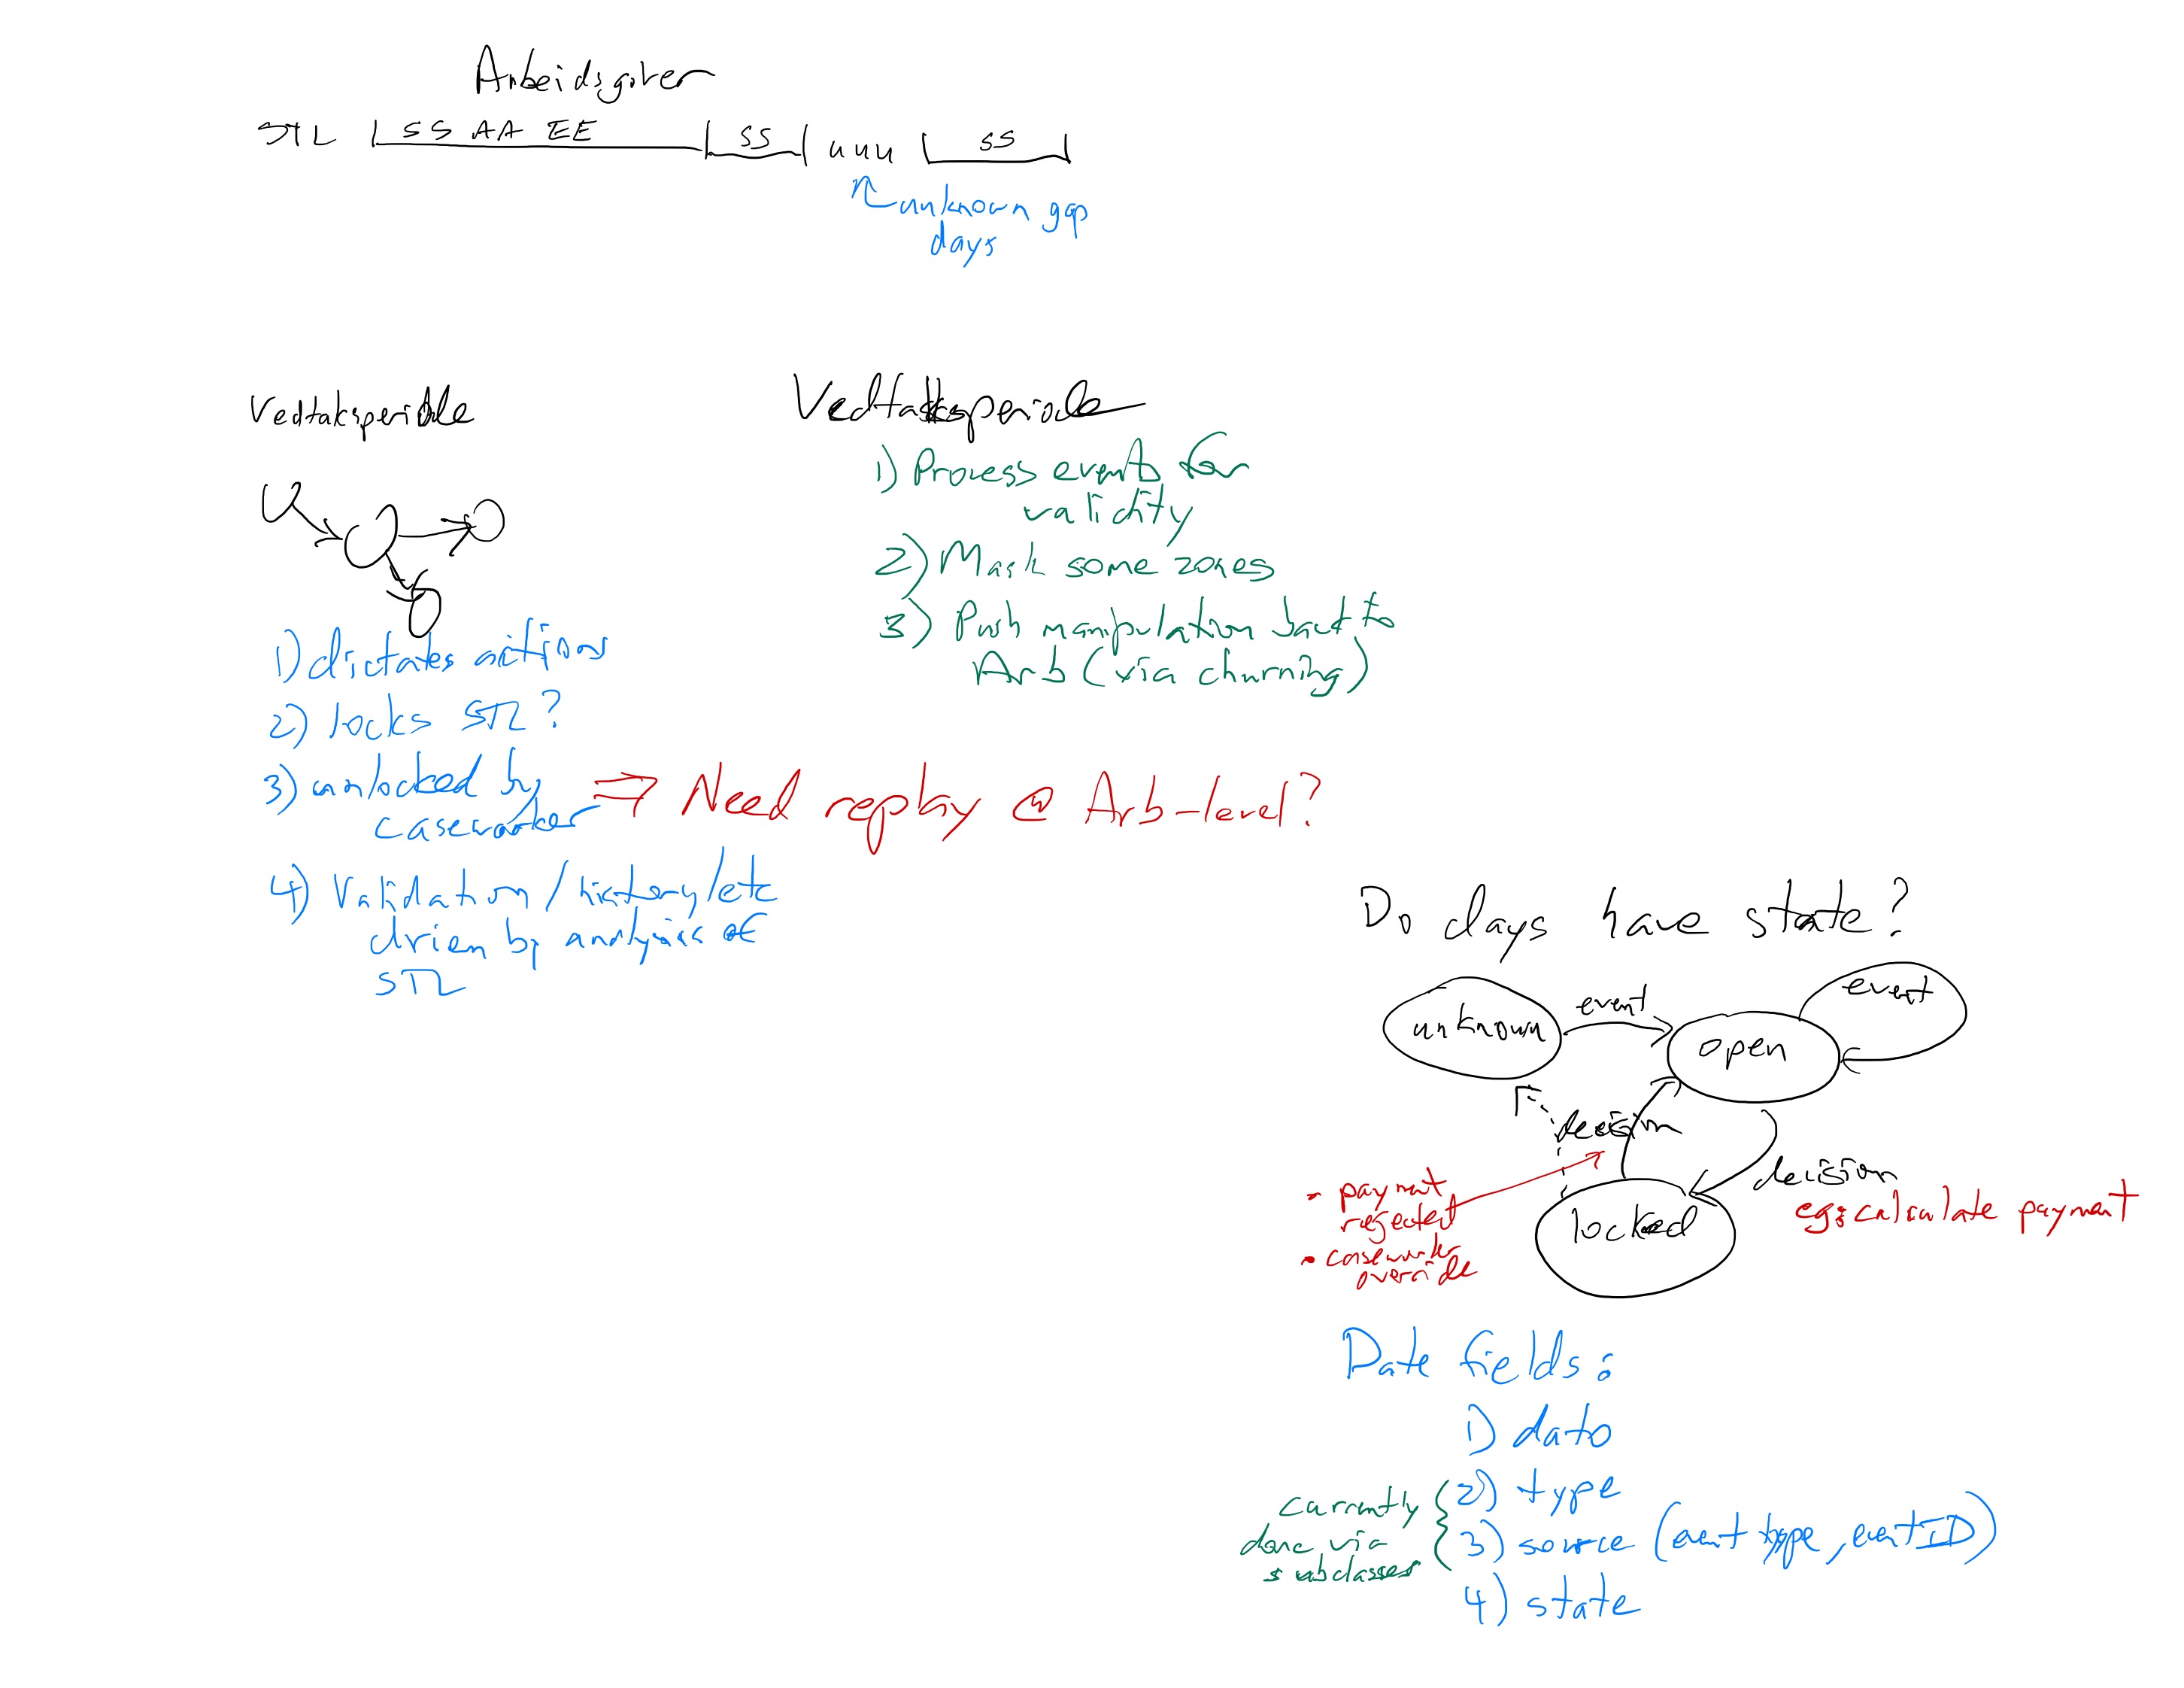 Arbeidsgiver
STL SS AA EE SS uuu SS
unknown gap
days
Vedtaksperiode
1) dictates actions
2) locks STL?
3) unlocked by
caseworker
4) Validation/history/etc
drien by analysis of
STL
Vedtaksperiode
1) Process events for
validity
2) Mask some zones
3) Push manipulation back to
Arb (via churning)
⇒ Need replay @ Arb-level?
Do days have state?
unknown
event
open
event
decision
decision
eg: calculate payment
locked
- payment
rejected
• caseworker
override
Date fields:
1) dato
2) type
3) source (event type, event ID)
4) state
currently
done via
subclasses